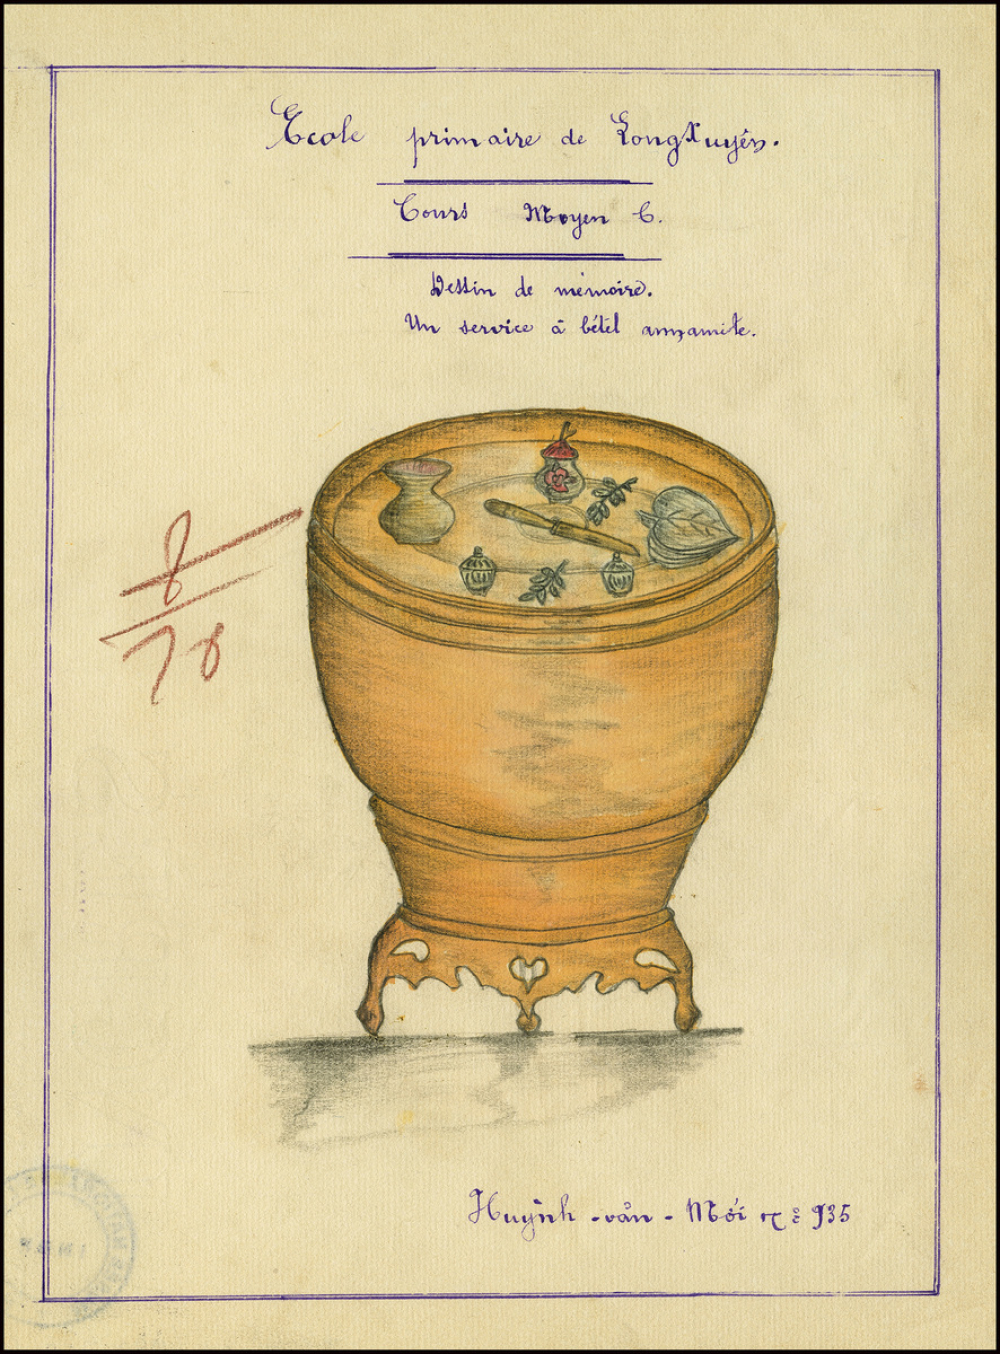 Ecole primaire de LongXuyên.
Cours Moyen C.
Dessin de mémoire.
Un service à bétel annamite.
8
10
Huỳnh-văn-Mới 935